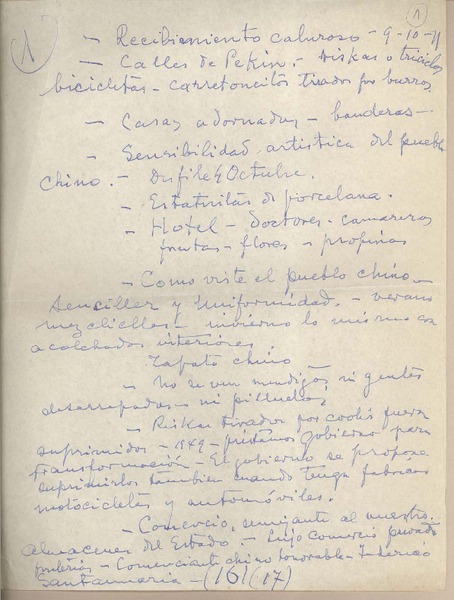 1
1
— Recibimiento caluroso — 9-10-
— Calles de Pekin. — Riskas o triciclos
bicicletas — carretoncitos tirados por burros
— Casas adornadas — banderas —
— Sensibilidad artistica del pueblo
chino. — Desfile Octubre.
— Estatuitas de porcelana.
— Hotel — doctores — camareros
frutas — flores — propinas
— Como viste el pueblo chino —
sencillez y uniformidad. — verano
mezclillas — invierno lo mismo con
acolchados interiores.
Zapato chino
— No se ven mendigos, ni gentes
desarrapadas — ni pilluelos.
— Riskas tirados por coolis fueron
suprimidos — 1949 — préstamos gobierno para
transformación — El gobierno se propone
suprimirlos tambien cuando tenga fabricas
motocicletas y automóviles.
— Comercio, semejante al nuestro.
Almacenes del Estado. — Lujo comercio privado
— Comerciante chino honorable.
Santamaria — (16) (17)